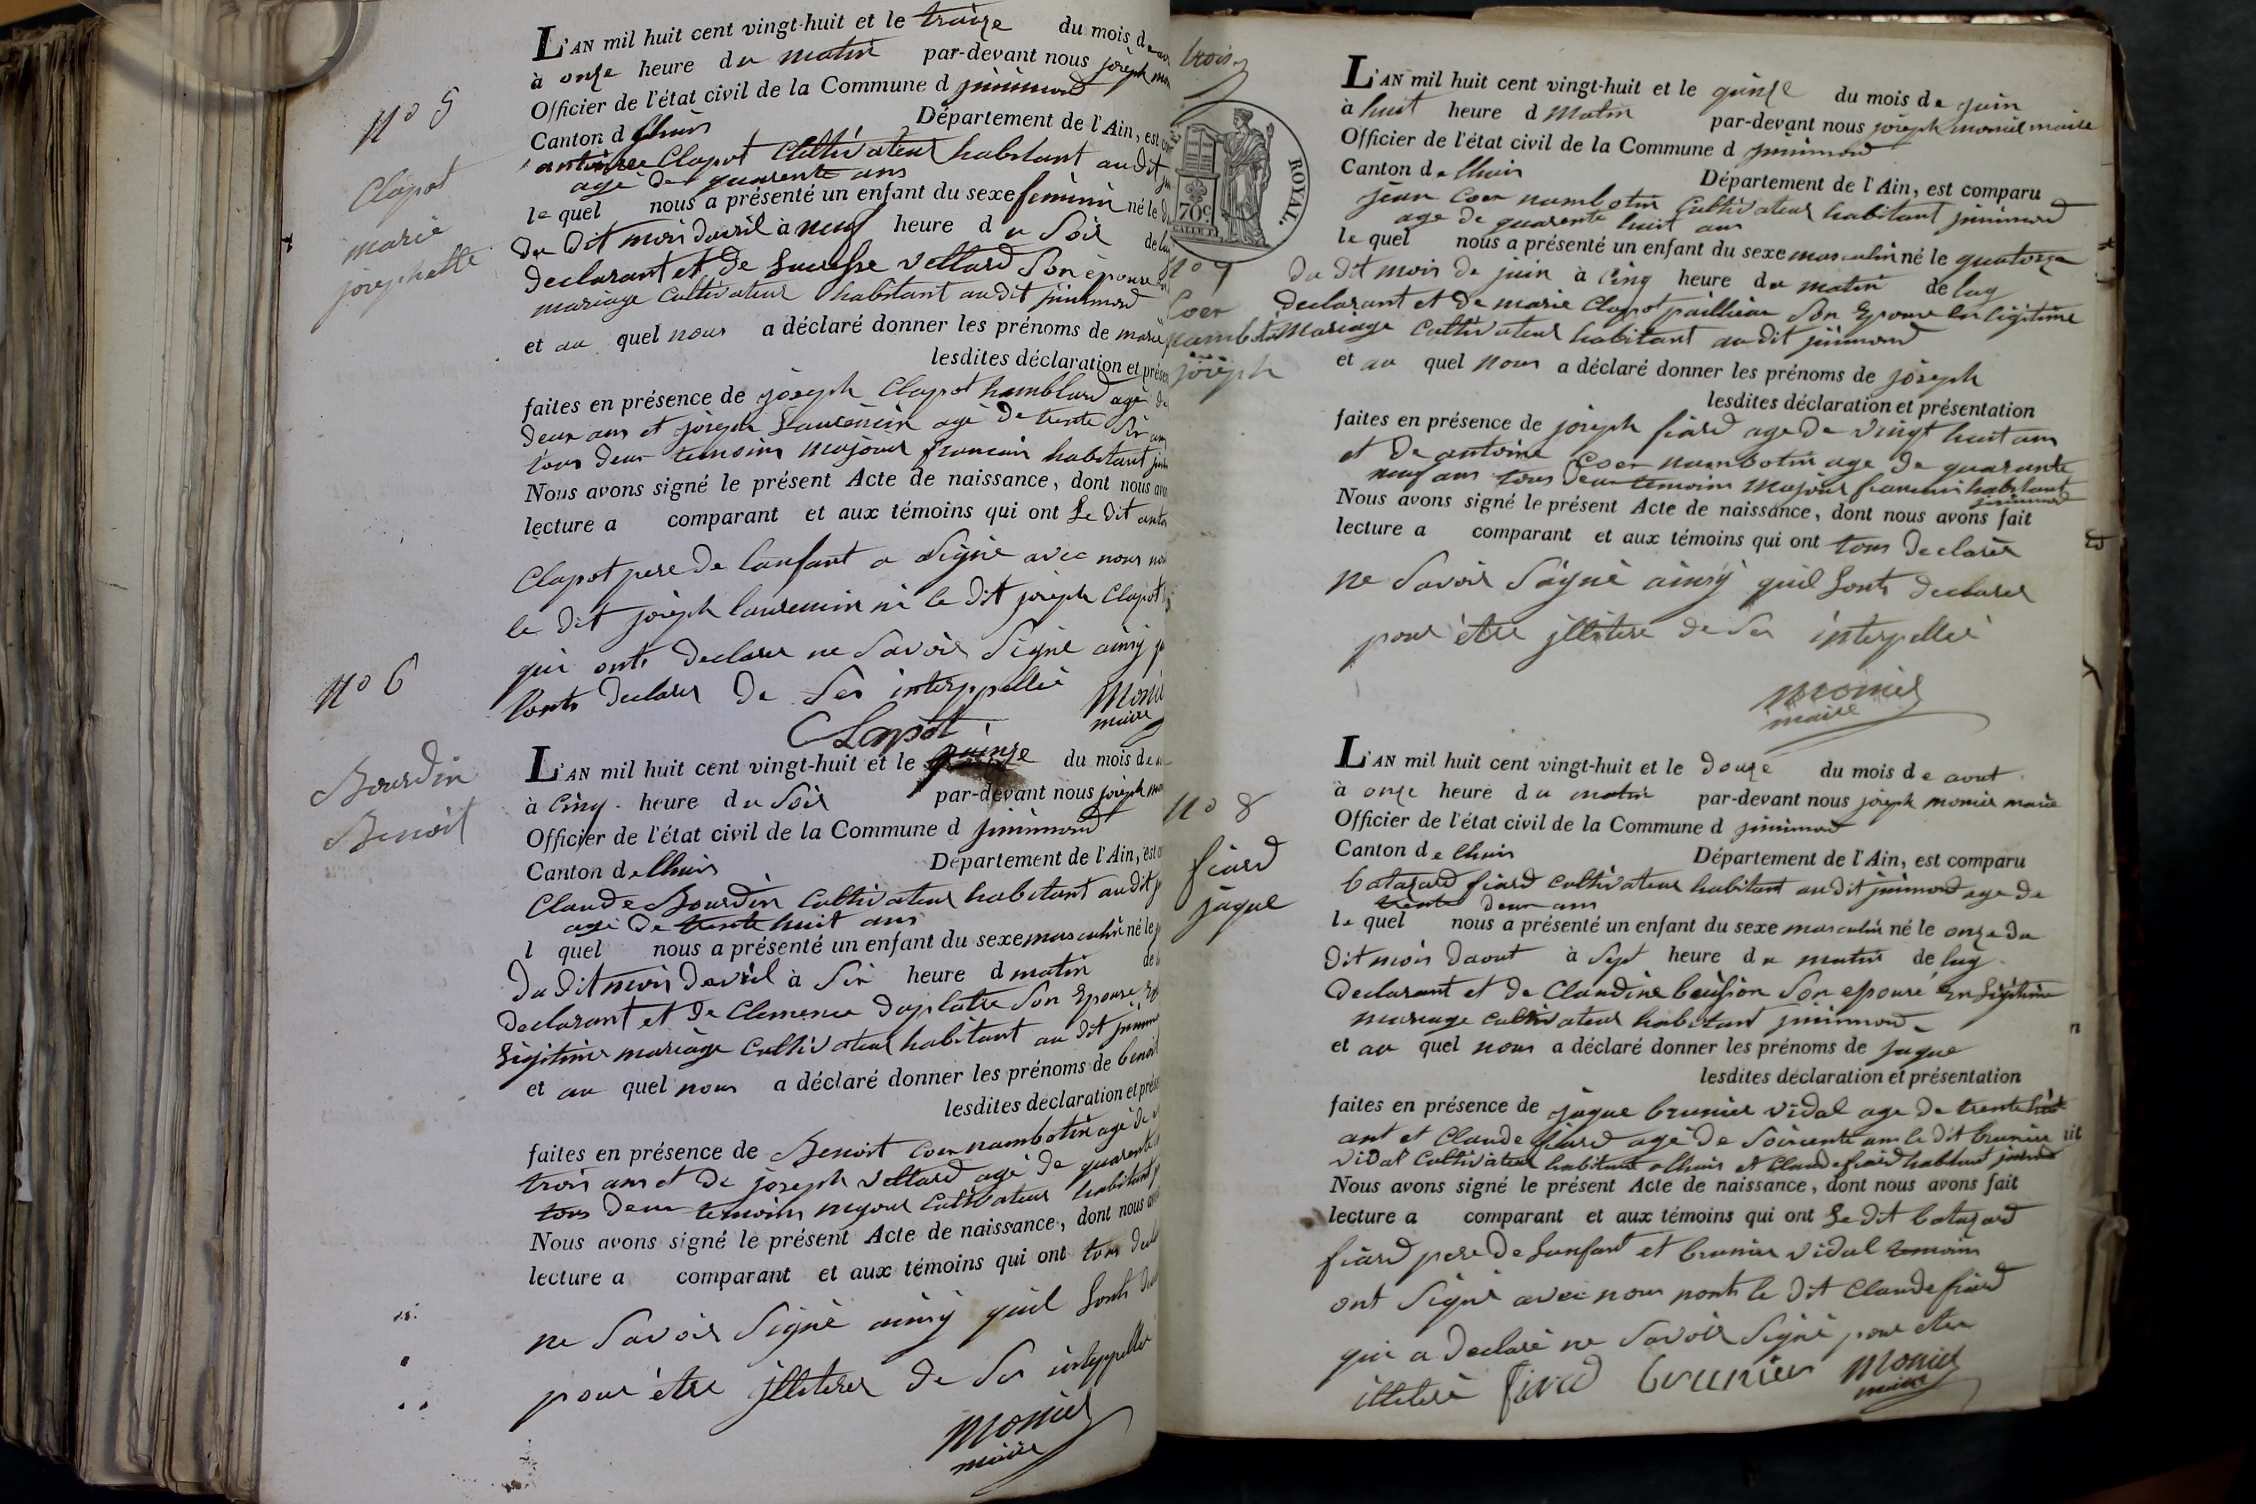 N.o 5
Clapot
marie
josephette
L'AN mil huit cent vingt-huit et le traize du mois d
à onze heure du matin par-devant nous joseph
Officier de l'état civil de la Commune d jnnimond
Canton d lhuis Département de l'Ain, est
antoine Clapot Cultivateur habitant audit
agé de quarente ans
le quel nous a présenté un enfant du sexe feminin né le
du dit mois davril à neuf heure du Soir de
declarant et de Son épouse
mariage Cultivateur habitant audit jnnimond
et au quel nous a déclaré donner les prénoms de marie
lesdites déclaration et
faites en présence de joseph Clapot hamblard agé de
deux ans et joseph Laurencin agé de trente Six ans
tous deux temoins majeur francais habitant
Nous avons signé le présent Acte de naissance, dont nous
lecture a comparant et aux témoins qui ont Le dit
Clapot pere de lanfant a Signé avec nous
le dit joseph laurencin ni le dit joseph Clapot
qui onts declarer ne Savoir Signé ainsy
Lonts declarer de Ses interppellé
Clapot
maire
N.o 6
Bourdin
Benoit
L'AN mil huit cent vingt-huit et le quinze du mois de
à Cinq heure du Soir par-devant nous joseph
Officier de l'état civil de la Commune d jnnimond
Canton de lhuis Département de l'Ain, est
Claude Bourdin Cultivateur habitant audit
agé de trente huit ans
l quel nous a présenté un enfant du sexe masculin né le
du dit mois davril à Six heure d matin de
declarant et de Clemence duplatre Son Epouse
Légitime mariage Cultivateur habitant au dit
et au quel nous a déclaré donner les prénoms de benoit
lesdites déclaration et
faites en présence de Benoit Coer nambotin agé de
trois ans et de joseph vettard agé de quarente
tous deux temoins mejeur Cultivateur habitant
Nous avons signé le présent Acte de naissance, dont nous
lecture a comparant et aux témoins qui ont tous
ne Savoir Signé ainsy quil Lonts
pour être jlliterer de Ses interppellé
monier
maire
trois
ROYAL.
70c
N.o 7
Coer
nambotin
joseph
L'AN mil huit cent vingt-huit et le quinze du mois de juin
à huit heure d matin par-devant nous joseph monier maire
Officier de l'état civil de la Commune d jnnimond
Canton de lhuis Département de l'Ain, est comparu
jean Coer nambotin Cultivateur habitant jnnimond
age de quarente huit ans
le quel nous a présenté un enfant du sexe masculin né le quatorze
du dit mois de juin à Cinq heure du matin de luy
declarant et de marie Clapot Son Epouse en Légitime
Mariage Cultivateur habitant au dit jnnimond
et au quel nous a déclaré donner les prénoms de joseph
lesdites déclaration et présentation
faites en présence de joseph fiard age de vingt huit ans
et de antoine Coer nambotin age de quarante
neuf ans tous deux temoins Majeur francais habitant
jnnimond
Nous avons signé le présent Acte de naissance, dont nous avons fait
lecture a comparant et aux témoins qui ont tous declarer
ne Savoir Signé ainsy quil Lonts declarer
pour être jlliterer de Ses interpellé
monier
maire
N.o 8
fiard
jaque
L'AN mil huit cent vingt-huit et le douze du mois de aout
à onze heure du matin par-devant nous joseph monier maire
Officier de l'état civil de la Commune d jnnimond
Canton de lhuis Département de l'Ain, est comparu
batazard fiard cultivateur habitant audit jnnimond age de
trente deux ans
le quel nous a présenté un enfant du sexe masculin né le onze du
dit mois daout à Sept heure du matin de luy
declarant et de Claudine Son epouse En Légitime
mariage cultivateur habitant jnnimond
et au quel nous a déclaré donner les prénoms de jaque
lesdites déclaration et présentation
faites en présence de jaque brunier vidal age de trente huit
ans et Claude fiard agé de Soixente ans le dit brunier
vidal Cultivateur habitant a lhuis et Claude fiard habitant jnnimond
Nous avons signé le présent Acte de naissance, dont nous avons fait
lecture a comparant et aux témoins qui ont Le dit batazard
fiard pere de Lanfant et brunier vidal temoin
ont Signé avec nous nonts le dit Claude fiard
qui a declaré ne Savoir Signé pour etre
illiteré fiard brunier monier
maire